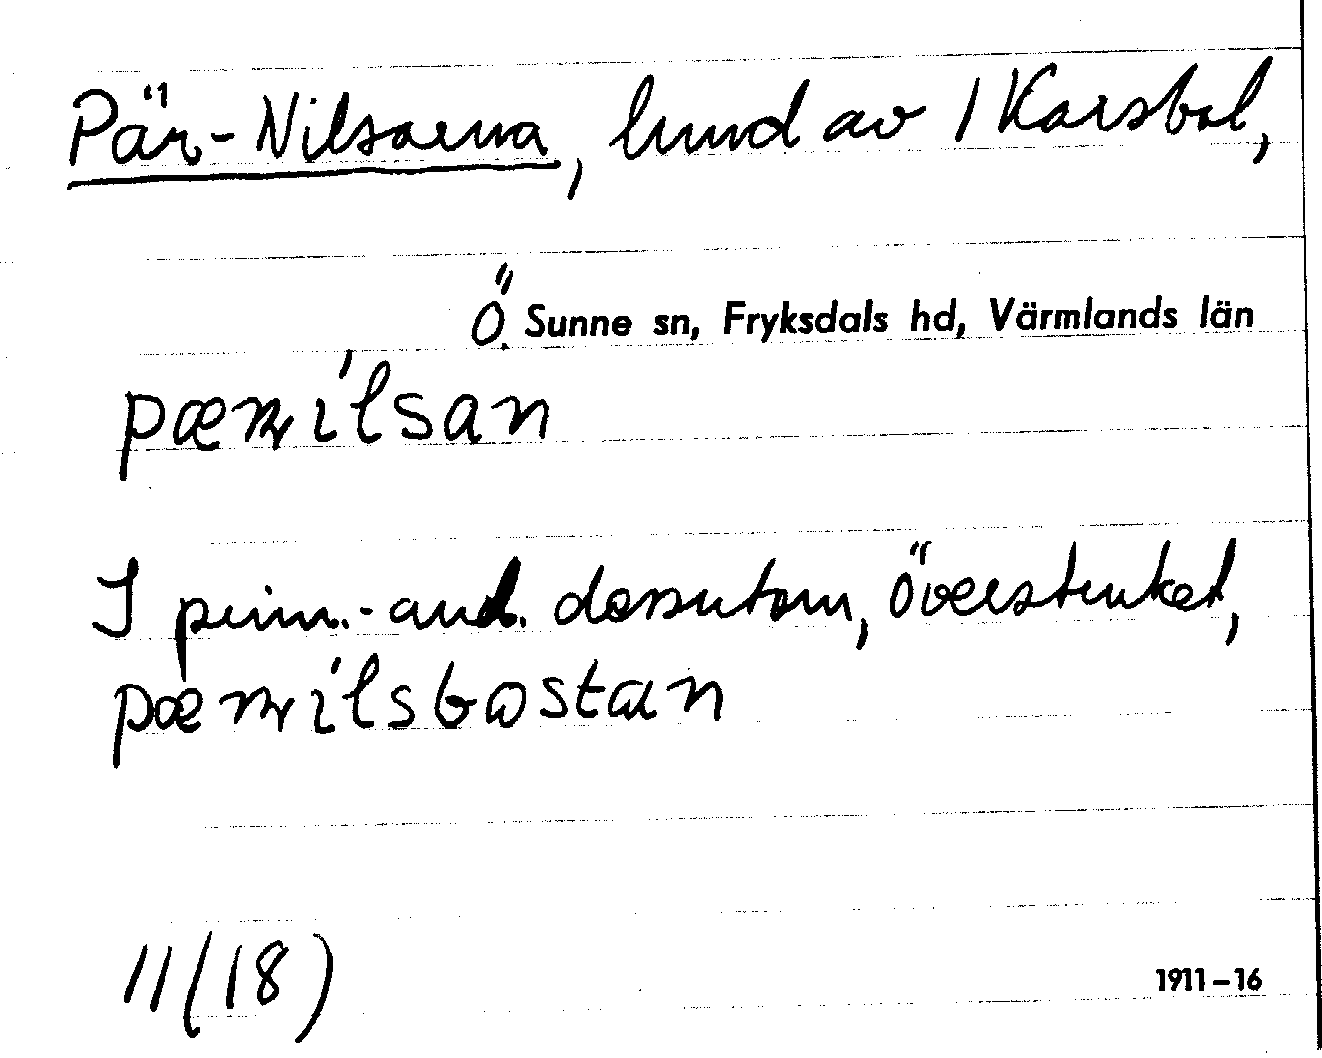 Pär-Nilsarna, lund av 1 Karsbol,
Ö. Sunne sn, Fryksdals hd, Värmlands län
pæɳilsan
I prim.-ant. dessutom, överstruket,
pæɳilsbostan
11 (18)
1911–16